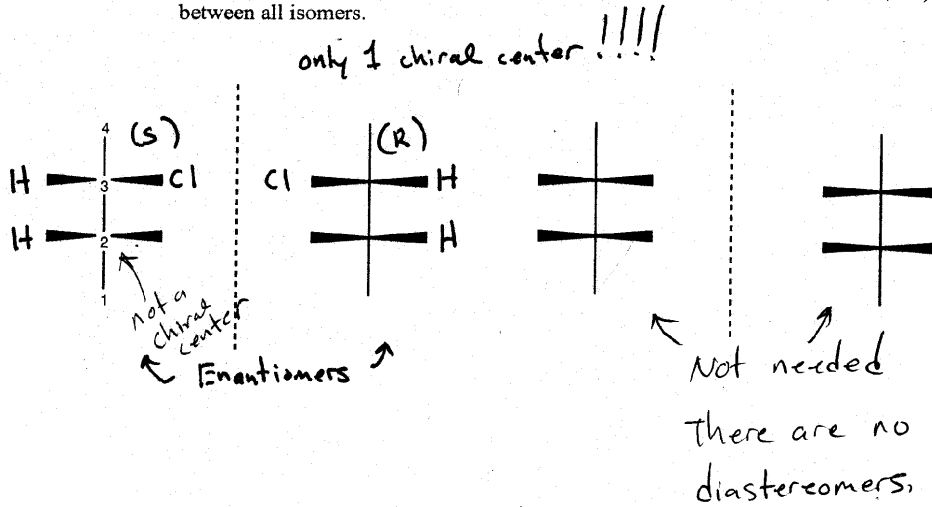 between all isomers.
only 1 chiral center !!!!
4 (S) (R)
H 3 Cl Cl H
H 2 H
1
not a
chiral
center
Enantiomers
Not needed
There are no
diastereomers.